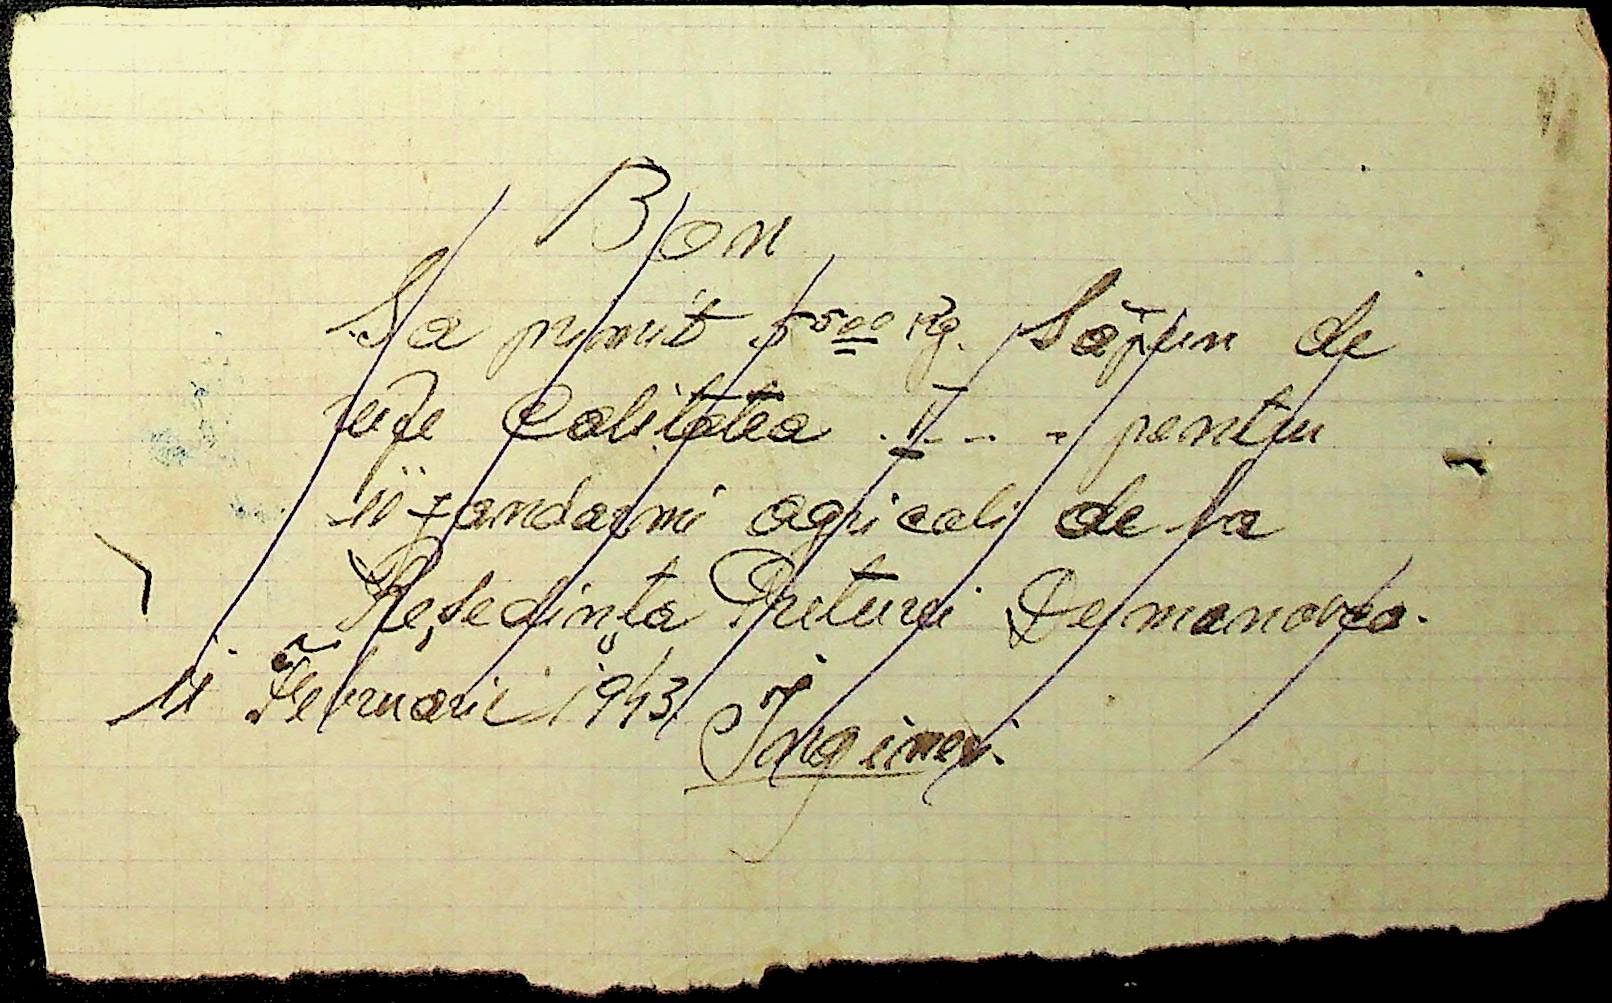 Bon
Sa primit 5500 Kg. Săpun de
rufe Calitatea . I - - - pentru
11 jandarmi agricoli de la
Reședința Preturei Demanovca.
11 Februarie 1943
Inginer.